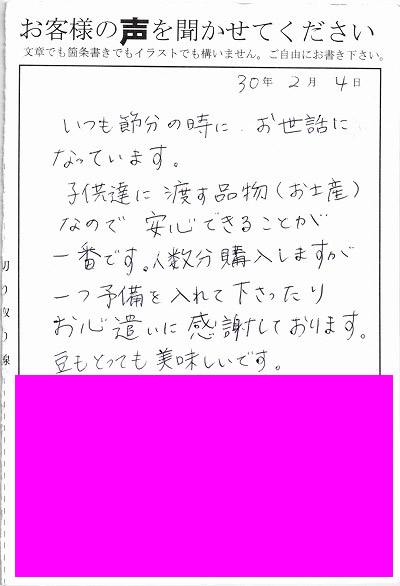 お客様の声を聞かせてください
文章でも箇条書きでもイラストでも構いません。ご自由にお書き下さい。
30年 2月 4日
いつも節分の時に お世話に
なっています。
子供達に 渡す品物(お土産)
なので 安心できることが
一番です。人数分購入しますが
一つ予備を入れて下さったり
お心遣いに感謝しております。
豆もとっても美味しいです。
切り取り線